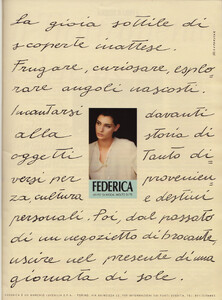 La gioia sottile di
scoperte inattese.
Frugare, curiosare, esplo
rare angoli nascosti.
Incantarsi davanti
alla storia di
oggetti Tanto di
versi per provenien
za, cultura e destini
personali. Poi, dal passato
di un negozietto di brocante,
uscire nel presente di una
giornata di sole.
FEDERICA